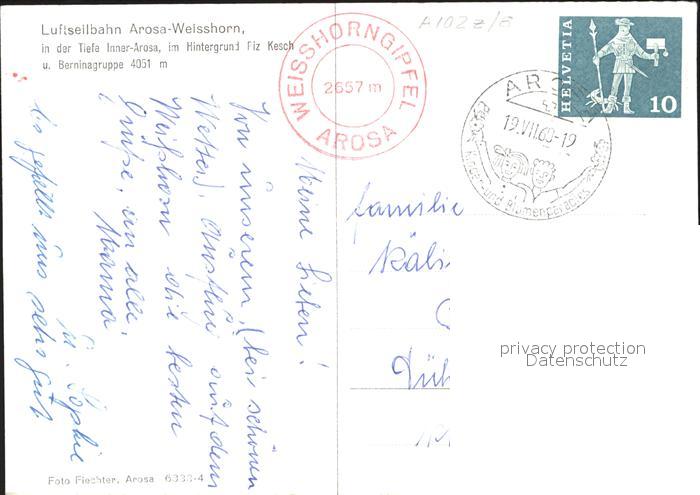 Luftseilbahn Arosa-Weisshorn,
in der Tiefe Inner-Arosa, im Hintergrund Piz Kesch
u. Berninagruppe 4051 m
A102z/6
WEISSHORNGIPFEL
2657 m
AROSA
HELVETIA
10
AROSA
19.VII.60-19
Kinder- und Blumenparadies
Meine Lieben!
Von unserem, (bei schönem
Wetter), Ausflug auf dem
Weisshorn die besten
Grüsse, an alle,
Mama
u. Sophie
Es gefällt uns sehr gut.
Familie
Käli
privacy protection
Datenschutz
Foto Fiechter, Arosa 6333-4